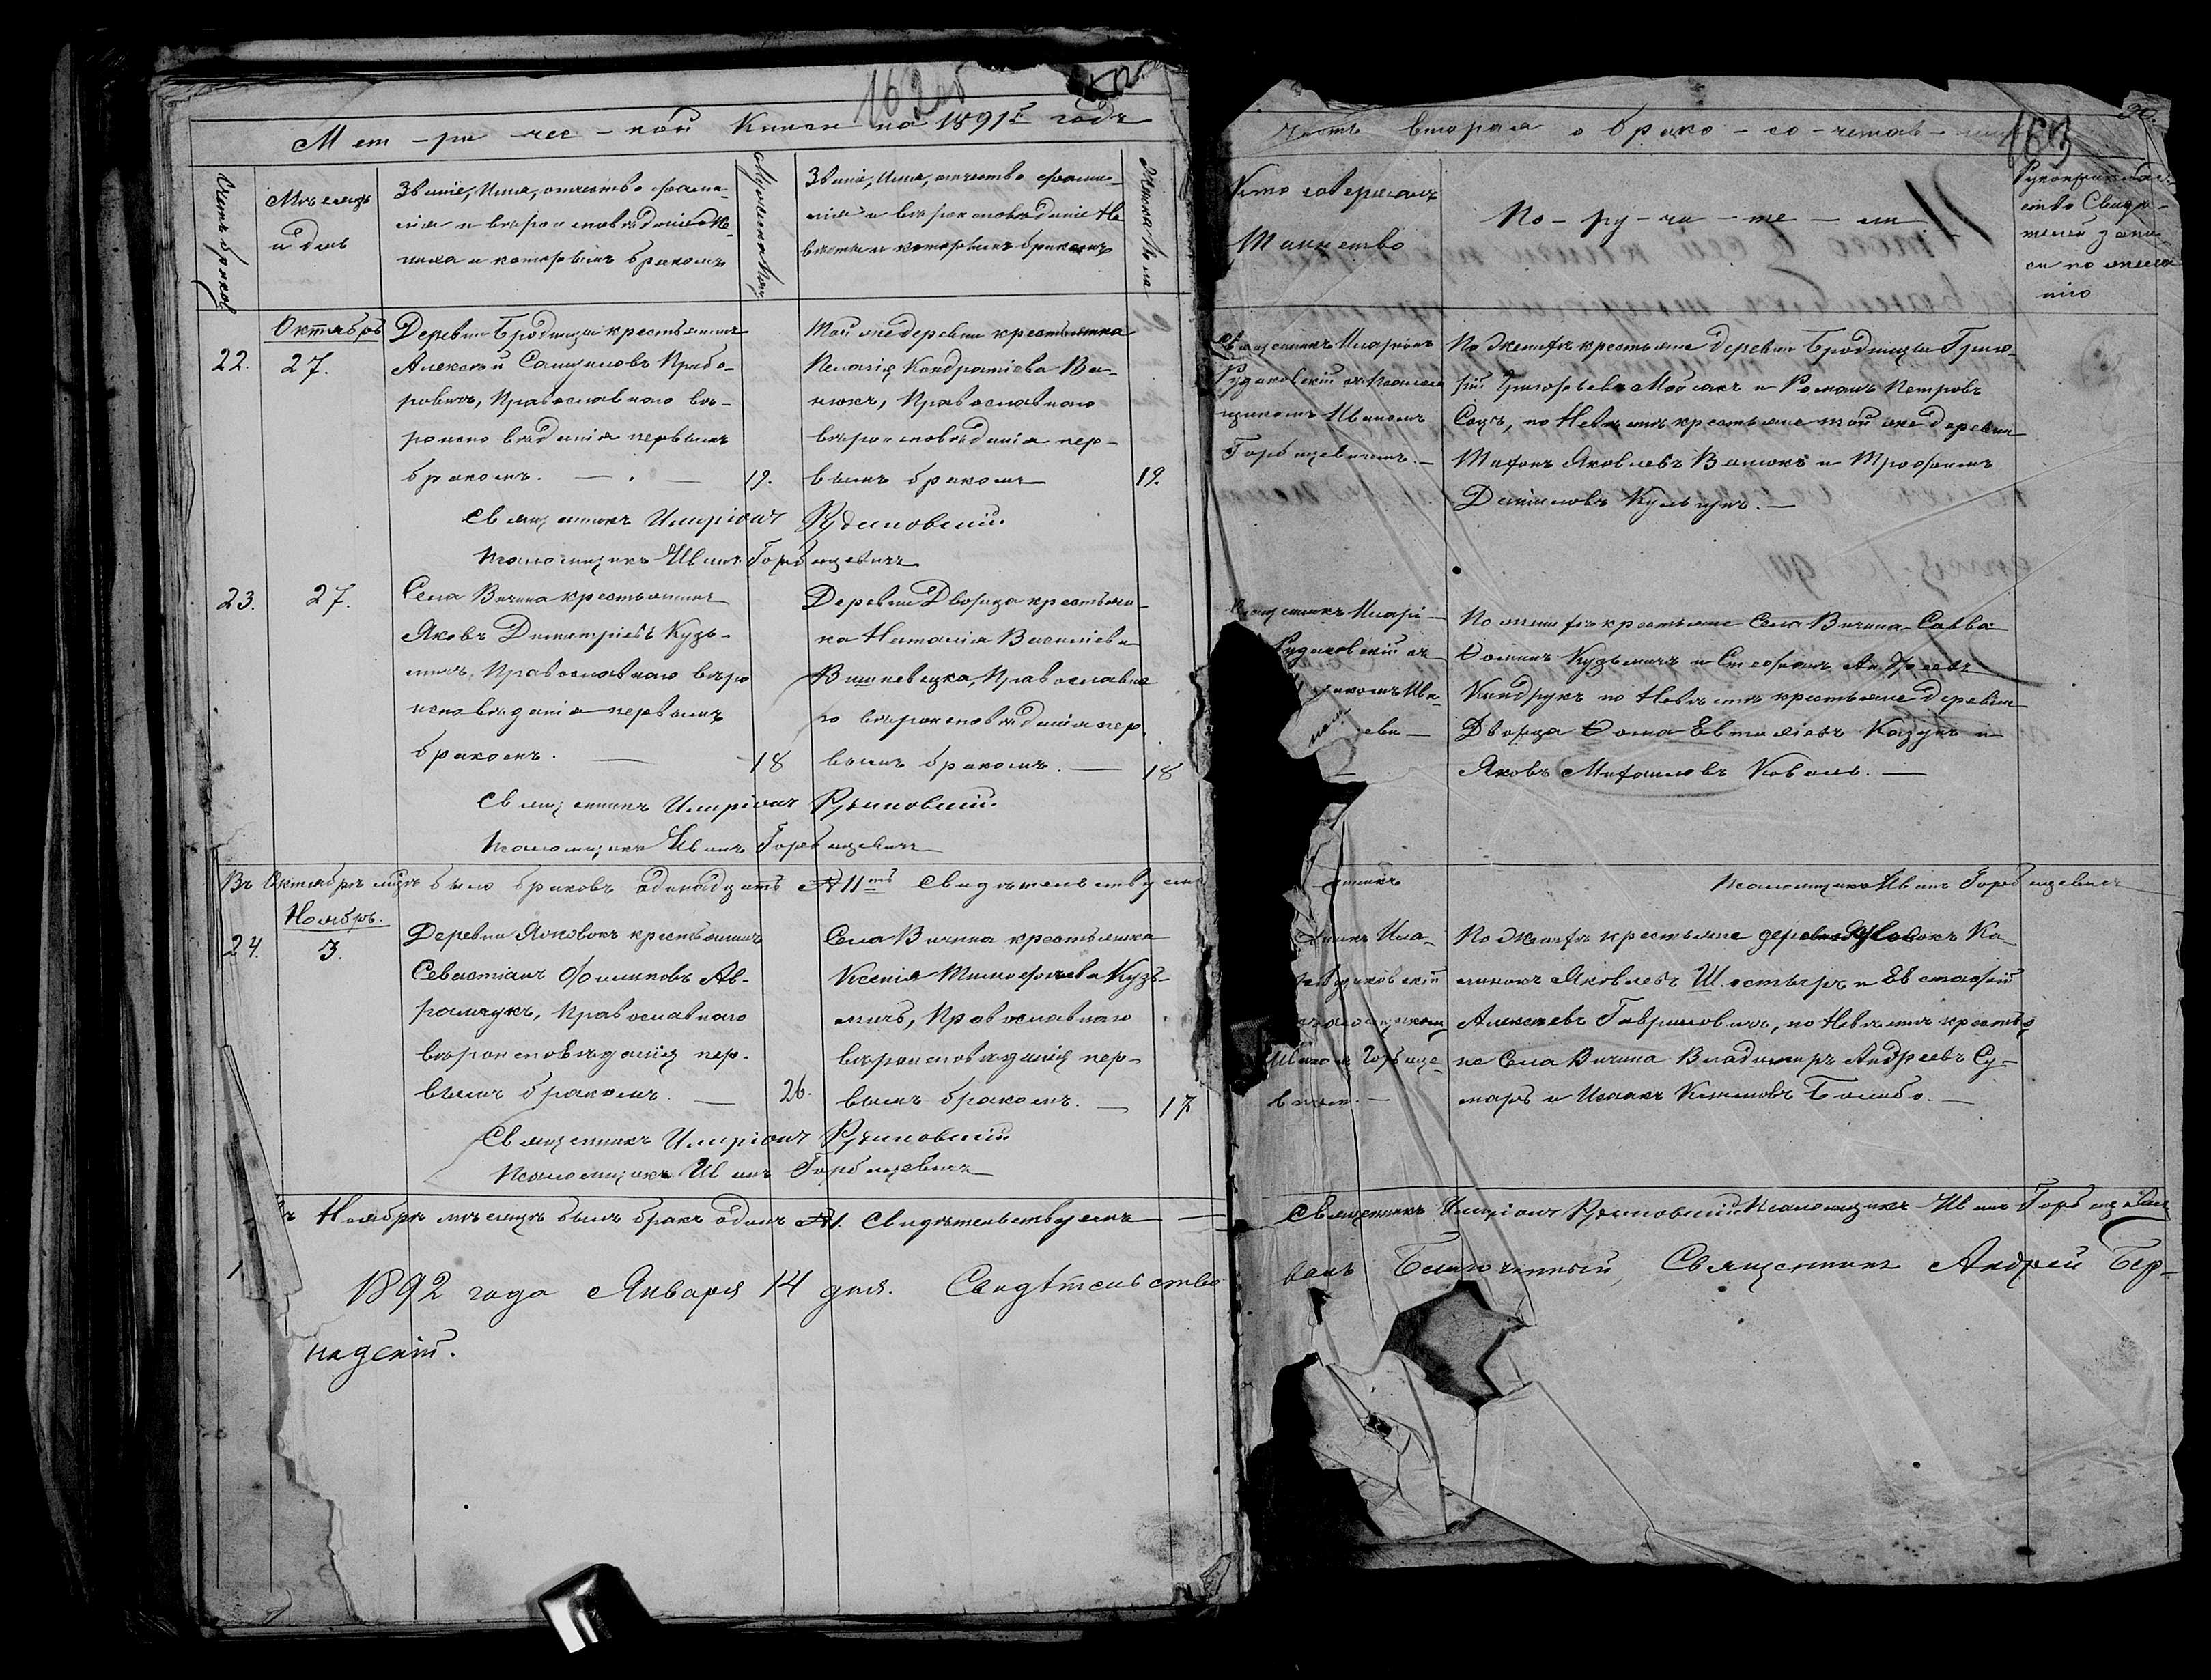 162 об
Мет-ри-чес-кой Книги на 1891й годъ
Счетъ браковъ
Мѣсяцъ
и день
Званіе, Имя, отчество фами-
лія и вѣроисповѣданіе Же-
ниха и которымъ бракомъ
Званіе, Имя, отчество фами-
лія и вѣроисповѣданіе Не
вѣсты и которымъ бракомъ
Октябрь
22.
27.
Деревни Бродницы крестьянинъ
Алексѣй Самуиловъ
Православнаго вѣ-
роисповѣданія первымъ
бракомъ. —
19.
Той же деревни крестьянка
Пелагія Кондратіева Ва-
нюкъ, Православнаго
вѣроисповѣданія пер-
вымъ бракомъ
19.
Священникъ Иларіонъ Рудаковскій
Псаломщикъ Иванъ Горбацевичъ
23.
27.
Села Вичина крестьянинъ
Яковъ Димитріевъ Кузь-
мичъ, Православнаго вѣро
исповѣданія первымъ
бракомъ. —
18
Деревни Дворца крестьян-
ка Наталія Василіева
Вишневецка, Православна
го вѣроисповѣданія пер
вымъ бракомъ. —
18
Священникъ Иларіонъ Рудаковскій
Псаломщикъ Иванъ Горбацевичъ
Въ Октябрѣ мцѣ было браковъ одинадцать № 11ть Свидѣтельствуемъ
Ноябрь.
24.
3.
Деревни Яжовокъ крестьянинъ
Севастіанъ Филиповъ Ав-
рамчукъ, Православнаго
вѣроисповѣданія пер-
вымъ бракомъ. —
26.
Села Вичина крестьянка
Ксенія Тимофеева Кузь-
мичъ, Православнаго
вѣроисповѣданія пер-
вымъ бракомъ. —
17
Священникъ Иларіонъ Рудаковскій
Псаломщикъ Иванъ Горбацевичъ
Ноябрѣ мѣсяцѣ былъ бракъ одинъ № 1. Свидѣтельствуемъ —
1892 года Января 14 дня. Свидѣтельство
надскій.
30.
163
Часть вторая о брако-со-четав-
Кто совершалъ
Таинство
По-ру-чи-те-ли
Рукоприклад-
ство Свидѣ-
телей запи-
си по жела
нію
Священникъ Иларіонъ
Рудаковскій съ Псалом
щикомъ Иваномъ
Горбацевичемъ. —
По Женихѣ крестьяне деревни Бродницы Григо-
рій Григорьевъ и Романъ Петровъ
по Невѣстѣ крестьяне той же деревни
Яковлевъ Ванюкъ и Трофимъ
Даниловъ —
Иларі-
Рудаковскій съ
Ива-
По женихѣ крестьяне Села Вичина Савва
Ѳоминъ Кузьмичъ и Стефанъ Андреевъ
Кондрукъ по Невѣстѣ крестьяне деревни
Дворца Ѳома и
Яковъ Михаиловъ Коваль. —
Псаломщикъ Иванъ Горбацевичъ
Ила-
Рудаковскій
Псаломщикомъ
Иваномъ Горбаце-
вичем. —
По Женихѣ крестьяне деревни Яжовокъ Ка
Яковлевъ и Евстафій
Алексѣевъ Гавриловичъ, по Невѣстѣ крестья
не Села Вичина Владимиръ Андреевъ Су-
маръ и —
Священникъ Иларіонъ Рудаковскій Псаломщикъ Иванъ Горбацевичъ
валъ Благочинный, Священникъ Андрей Бер-